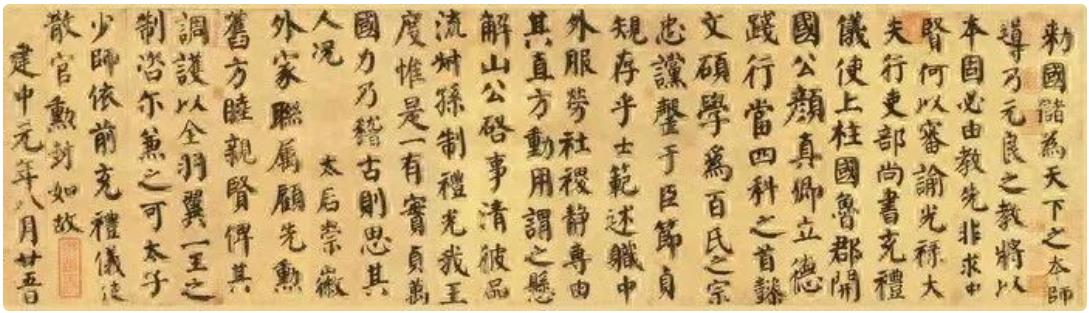 勅國儲為天下之本師
導乃元良之教將以
本固必由教先非求中
賢何以審諭光祿大
夫行吏部尚書充禮
儀使上柱國魯郡開
國公顏真卿立德
踐行當四科之首懿
文碩學爲百氏之宗
忠讜罄于臣節貞
規存乎士範述職中
外服勞社稷靜專由
其直方動用謂之懸
解山公啓事清彼品
流叔孫制禮光我王
度惟是一有實貞萬
國力乃稽古則思其
人况 太后崇徽
外家聯属顧先勲
舊方睦親賢俾其
調護以全羽翼一王之
制咨尔兼之可太子
少師依前充禮儀使
散官勲封如故
建中元年八月廿五日